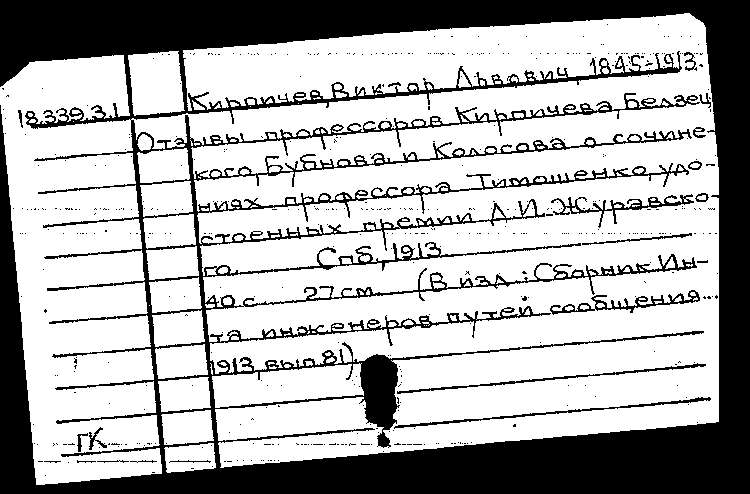 Кирпичев, Виктор Львович, 1845-1913.
18.339.3.1
Отзывы профессоров Кирпичева, Белзец
кого, Бубнова и Колосова о сочине-
ниях профессора Тимошенко, удо-
стоенных премии Д.И. Журавско-
го. Спб., 1913.
40 с. 27 см. (В изд.: Сборник Ин-
та инженеров путей сообщения...
1913, вып. 81).
ГК